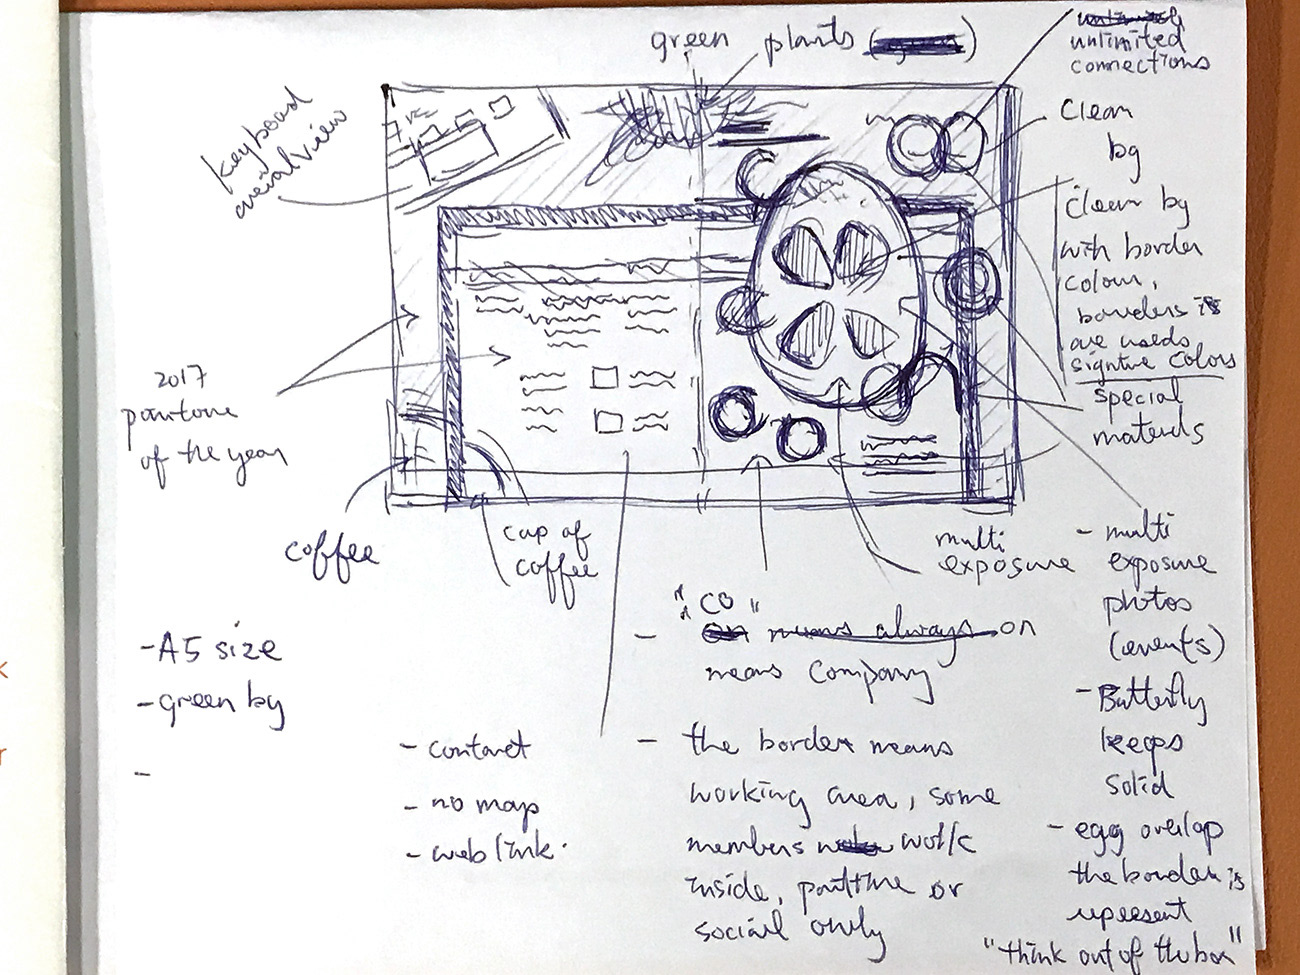 green plants
unlimited
connections
keyboard
aerial view
Clean
bg
Clean bg
with border
colour,
borders is
are useds
signtive colors
special
materials
2017
pantone
of the year
coffee
cup of
coffee
multi
exposure
- multi
exposure
photos
(events)
- Butterfly
keeps
solid
- egg overlap
the border is
represent
"think out of the box"
- A5 size
- green bg
-
- contact
- no map
- web link.
- "CO" means always on
means Company
- the border means
working area, some
members work
inside, parttime or
social only